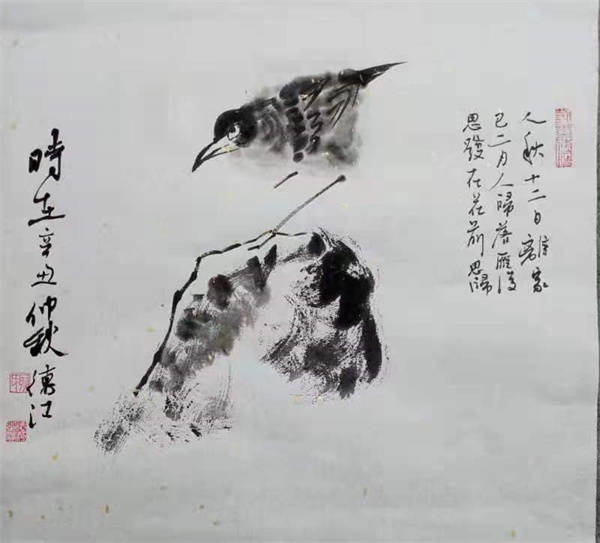 入秋十二日離家
已二月人歸落雁後
思發在花前思歸
時在辛丑仲秋德江